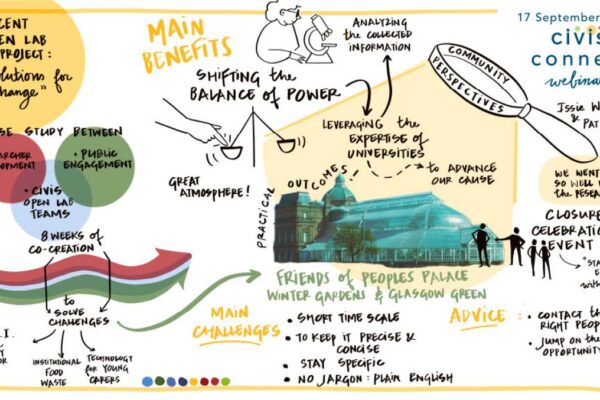 CENT
EN LAB
PROJECT:
olutions for
hange"
SE STUDY BETWEEN
ARCHER
OPMENT
• PUBLIC
ENGAGEMENT
• CIVIS
OPEN LAB
TEAMS
8 WEEKS of
CO-CREATION
to
SOLVE
CHALLENGES
INSTITUTIONAL
FOOD
WASTE
TECHNOLOGY
for YOUNG
CARERS
MAIN
BENEFITS
ANALYZING
the COLLECTED
INFORMATION
SHIFTING the
BALANCE of POWER
GREAT
ATMOSPHERE!
LEVERAGING the
EXPERTISE of
UNIVERSITIES
to ADVANCE
OUR CAUSE
PRACTICAL OUTCOMES!
FRIENDS of PEOPLES PALACE
WINTER GARDENS & GLASGOW GREEN
MAIN
CHALLENGES
• SHORT TIME SCALE
• TO KEEP IT PRECISE &
CONCISE
• STAY SPECIFIC
• NO JARGON: PLAIN ENGLISH
COMMUNITY
PERSPECTIVES
17 September
civis
conne
webina
Issie W
& PAT
WE WENT
SO WELL
the RESEA
CLOSURE
CELEBRATI
EVENT
"STA
E
with
ADVICE :
• CONTACT th
RIGHT PEOP
• JUMP ON the
OPPORTUNITY